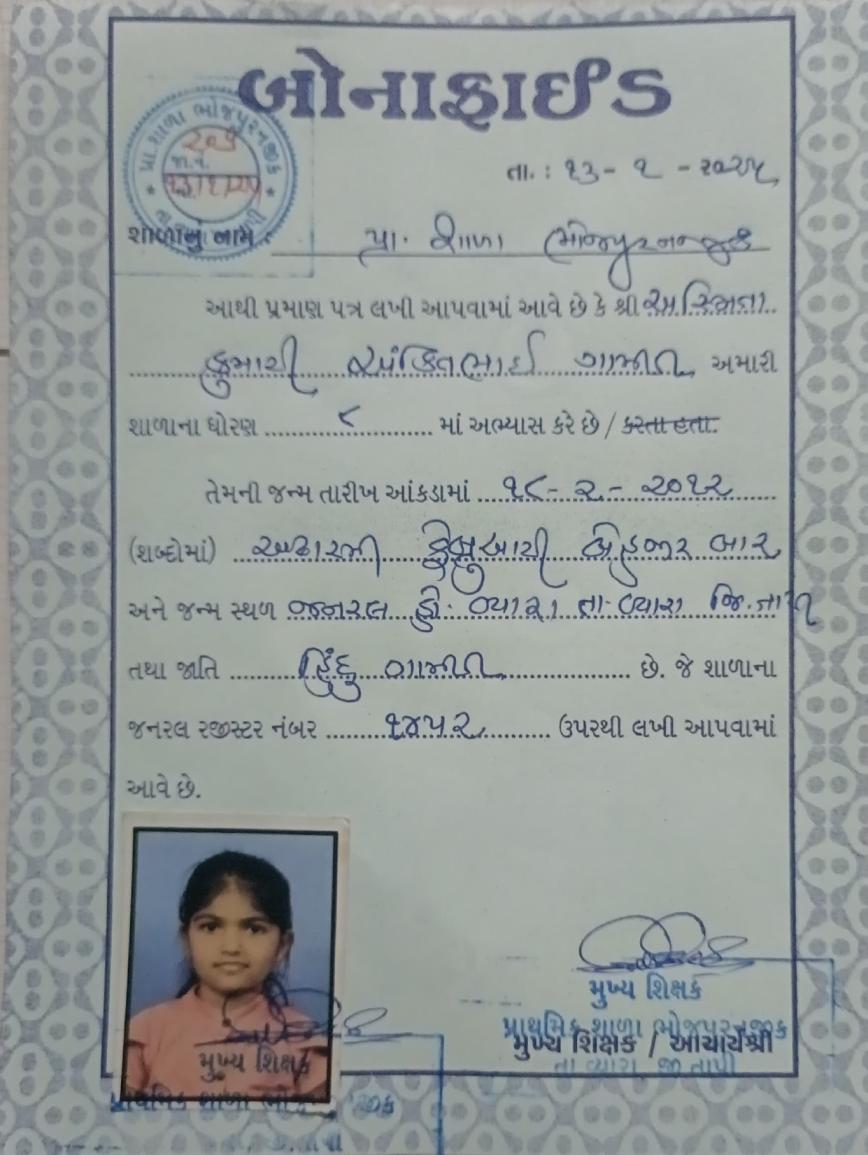 બોનાફાઈડ
પ્રા. શાળા ભોજપુરનજીક
જા.નં.
તા.: ૧૩-૧-૨૦૨૫
શાળાનું નામ: પ્રા. શાળા ભોજપુરનજીક
આથી પ્રમાણ પત્ર લખી આપવામાં આવે છે કે શ્રી અસ્મિતા
કુમારી અંકિતભાઈ ગામીત અમારી
શાળાના ધોરણ ૮ માં અભ્યાસ કરે છે / કરતા હતા.
તેમની જન્મ તારીખ આંકડામાં ૧૮-૨-૨૦૧૨
(શબ્દોમાં) અઢારમી ફેબ્રુઆરી બે હજાર બાર
અને જન્મ સ્થળ જનરલ હો. વ્યારા તા. વ્યારા જિ. તાપી
તથા જાતિ હિંદુ ગામીત છે. જે શાળાના
જનરલ રજીસ્ટર નંબર ૧૪૫૨ ઉપરથી લખી આપવામાં
આવે છે.
મુખ્ય શિક્ષક
પ્રાથમિક શાળા ભોજપુરનજીક
મુખ્ય શિક્ષક / આચાર્યશ્રી
તા વ્યારા જી તાપી
મુખ્ય શિક્ષક
પ્રાથમિક શાળા